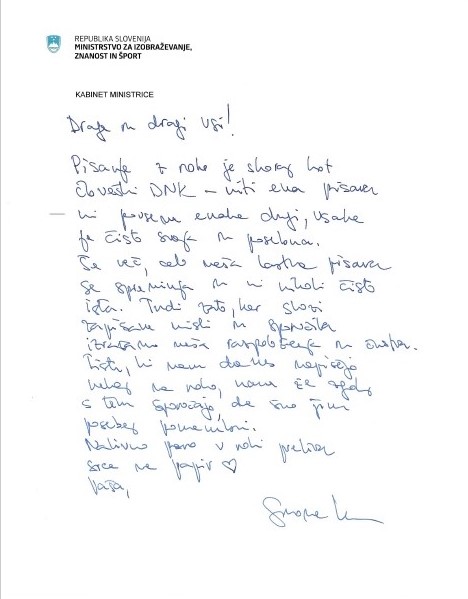 REPUBLIKA SLOVENIJA
MINISTRSTVO ZA IZOBRAŽEVANJE,
ZNANOST IN ŠPORT
KABINET MINISTRICE
Drage in dragi vsi!
Pisanje z roko je skoraj kot
človeški DNK – niti ena pisava
ni povsem enaka drugi, vsaka
je čisto svoja in posebna.
Še več, celo naša lastna pisava
se spreminja in ni nikoli čisto
ista. Tudi zato, ker skozi
zapisane misli in sporočila
izražamo naša razpoloženja in
Tisti, ki nam danes napišejo
nekaj na roko, nam že zgolj
s tem sporočajo, da smo jim
posebej pomembni.
Nalivno pero v roki preliva
srce na papir ♡
Vaša,